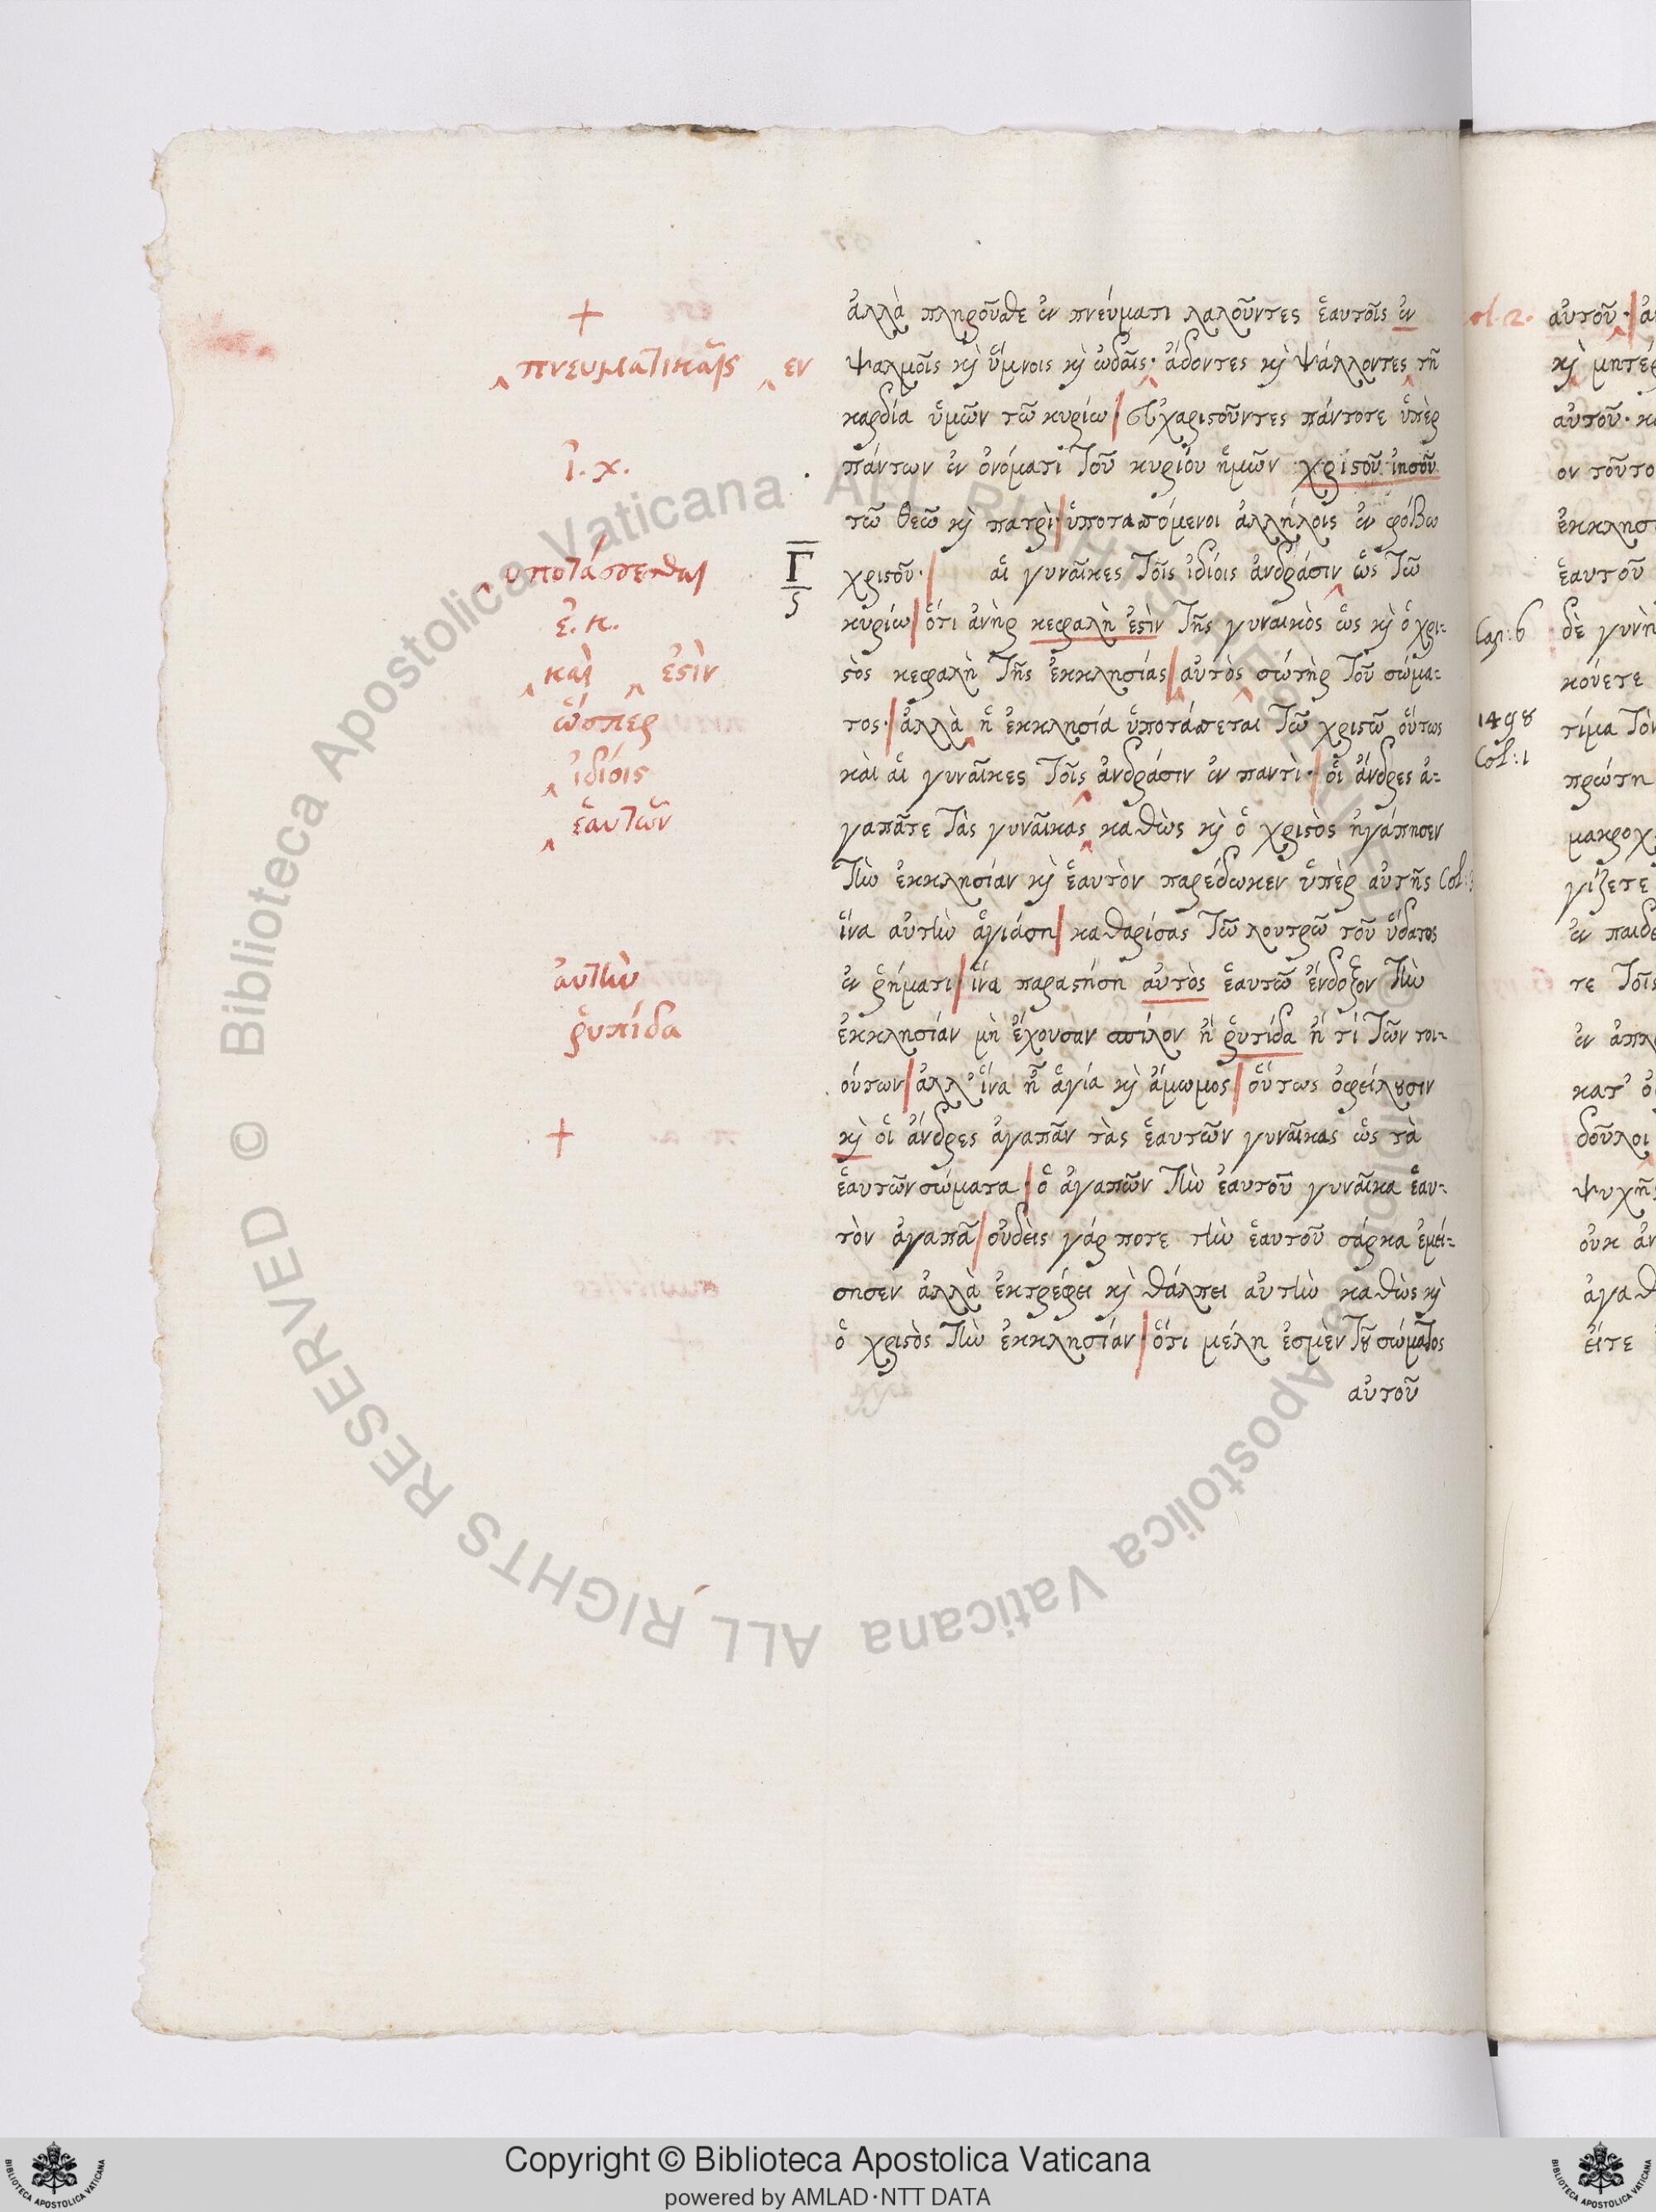 +
πνευματικαῖς εν
ἰ. χ.
ὑποτάσσεσθαι
ἐ. κ.
καὶ ἐστὶν
ὥσπερ
ἰδίοις
ἑαυτῶν
ἀυτὴν
ῥυπίδα
+
Γ
ς
ἀλλὰ πληροῦσθε ἐν πνεύματι λαλοῦντες ἑαυτοῖς ἐν
ψαλμοῖς κὶ ὕμνοις κὶ ὠδαῖς· ἄδοντες κὶ ψάλλοντες τῆ
καρδία ὑμῶν τῶ κυρίω εὐχαριστοῦντες πάντοτε ὑπὲρ
πάντων ἐν ὀνόματι τοῦ κυρίου ἡμῶν χριστοῦ ἰησοῦ
τῶ θεῶ κὶ πατρὶ· ὑποτασσόμενοι ἀλλήλοις ἐν φόβω
χριστοῦ· αἱ γυναῖκες τοῖς ἰδίοις ἀνδράσιν ὡς τῶ
κυρίω ὅτι ἀνὴρ κεφαλὴ ἐστὶν τῆς γυναικὸς ὡς κὶ ὁ χρι-
στὸς κεφαλὴ τῆς ἐκκλησίας αὐτὸς σώτὴρ τοῦ σώμα-
τος· ἀλλὰ ἡ ἐκκλησία ὑποτάσσεται τῶ χριστῶ οὕτως
καὶ αἱ γυναῖκες τοῖς ἀνδράσιν ἐν παντὶ· οἱ ἄνδρες ἀ-
γαπᾶτε τὰς γυναῖκας καθὼς κὶ ὁ χριστὸς ἠγάπησεν
τὴν ἐκκλησίαν κὶ ἑαυτὸν παρέδωκεν ὑπὲρ αὐτῆς Col:
ἵνα αὐτὴν ἁγιάση καθαρίσας τῶ λουτρῶ τοῦ ὕδατος
ἐν ῥήματι ἵνα παραστήση αὐτὸς ἑαυτῶ ἔνδοξον τὴν
ἐκκλησίαν μὴ ἔχουσαν σπίλον ἢ ῥυτίδα ἤ τί τῶν τοι-
ούτων ἀλλ' ἵνα ἦ ἁγία κὶ ἄμωμος οὕτως ὀφείλουσιν
κὶ οἱ ἄνδρες ἀγαπᾶν τὰς ἑαυτῶν γυναῖκας ὡς τὰ
ἑαυτῶν σώματα· ὁ ἀγαπῶν τὴν ἑαυτοῦ γυναῖκα ἑαυ-
τὸν ἀγαπᾶ οὐδεὶς γάρ ποτε τὴν ἑαυτοῦ σάρκα ἐμεί-
σησεν ἀλλὰ ἐκτρέφει κὶ θάλπει αὐτὴν καθὼς κὶ
ὁ χριστὸς τὴν ἐκκλησίαν ὅτι μέλη ἐσμὲν τοῦ σώματος
αὐτοῦ
ol. 2. αὐτοῦ·
κὶ μητέρ
αὐτοῦ· κα
ον τοῦτο
ἐκκλησι
ἑαυτοῦ
Cap: 6 δὲ γυνὴ
κόυετε
1498 τίμα τὸν
Col: 1 πρώτη
μακροχ
γίζετε
ἐν παιδε
τε τοῖς
ἐν ἁπλ
κατ' ὀ
δοῦλοι
ψυχῆς
οὐκ ἀν
ἀγαθ
εἴτε
© Biblioteca Apostolica Vaticana ALL RIGHTS RESERVED © Biblioteca Apostolica Vaticana ALL RIGHTS RESERVED
Copyright © Biblioteca Apostolica Vaticana
powered by AMLAD·NTT DATA
BIBLIOTECA APOSTOLICA VATICANA
BIBLIOTECA APOSTOLICA VATICANA